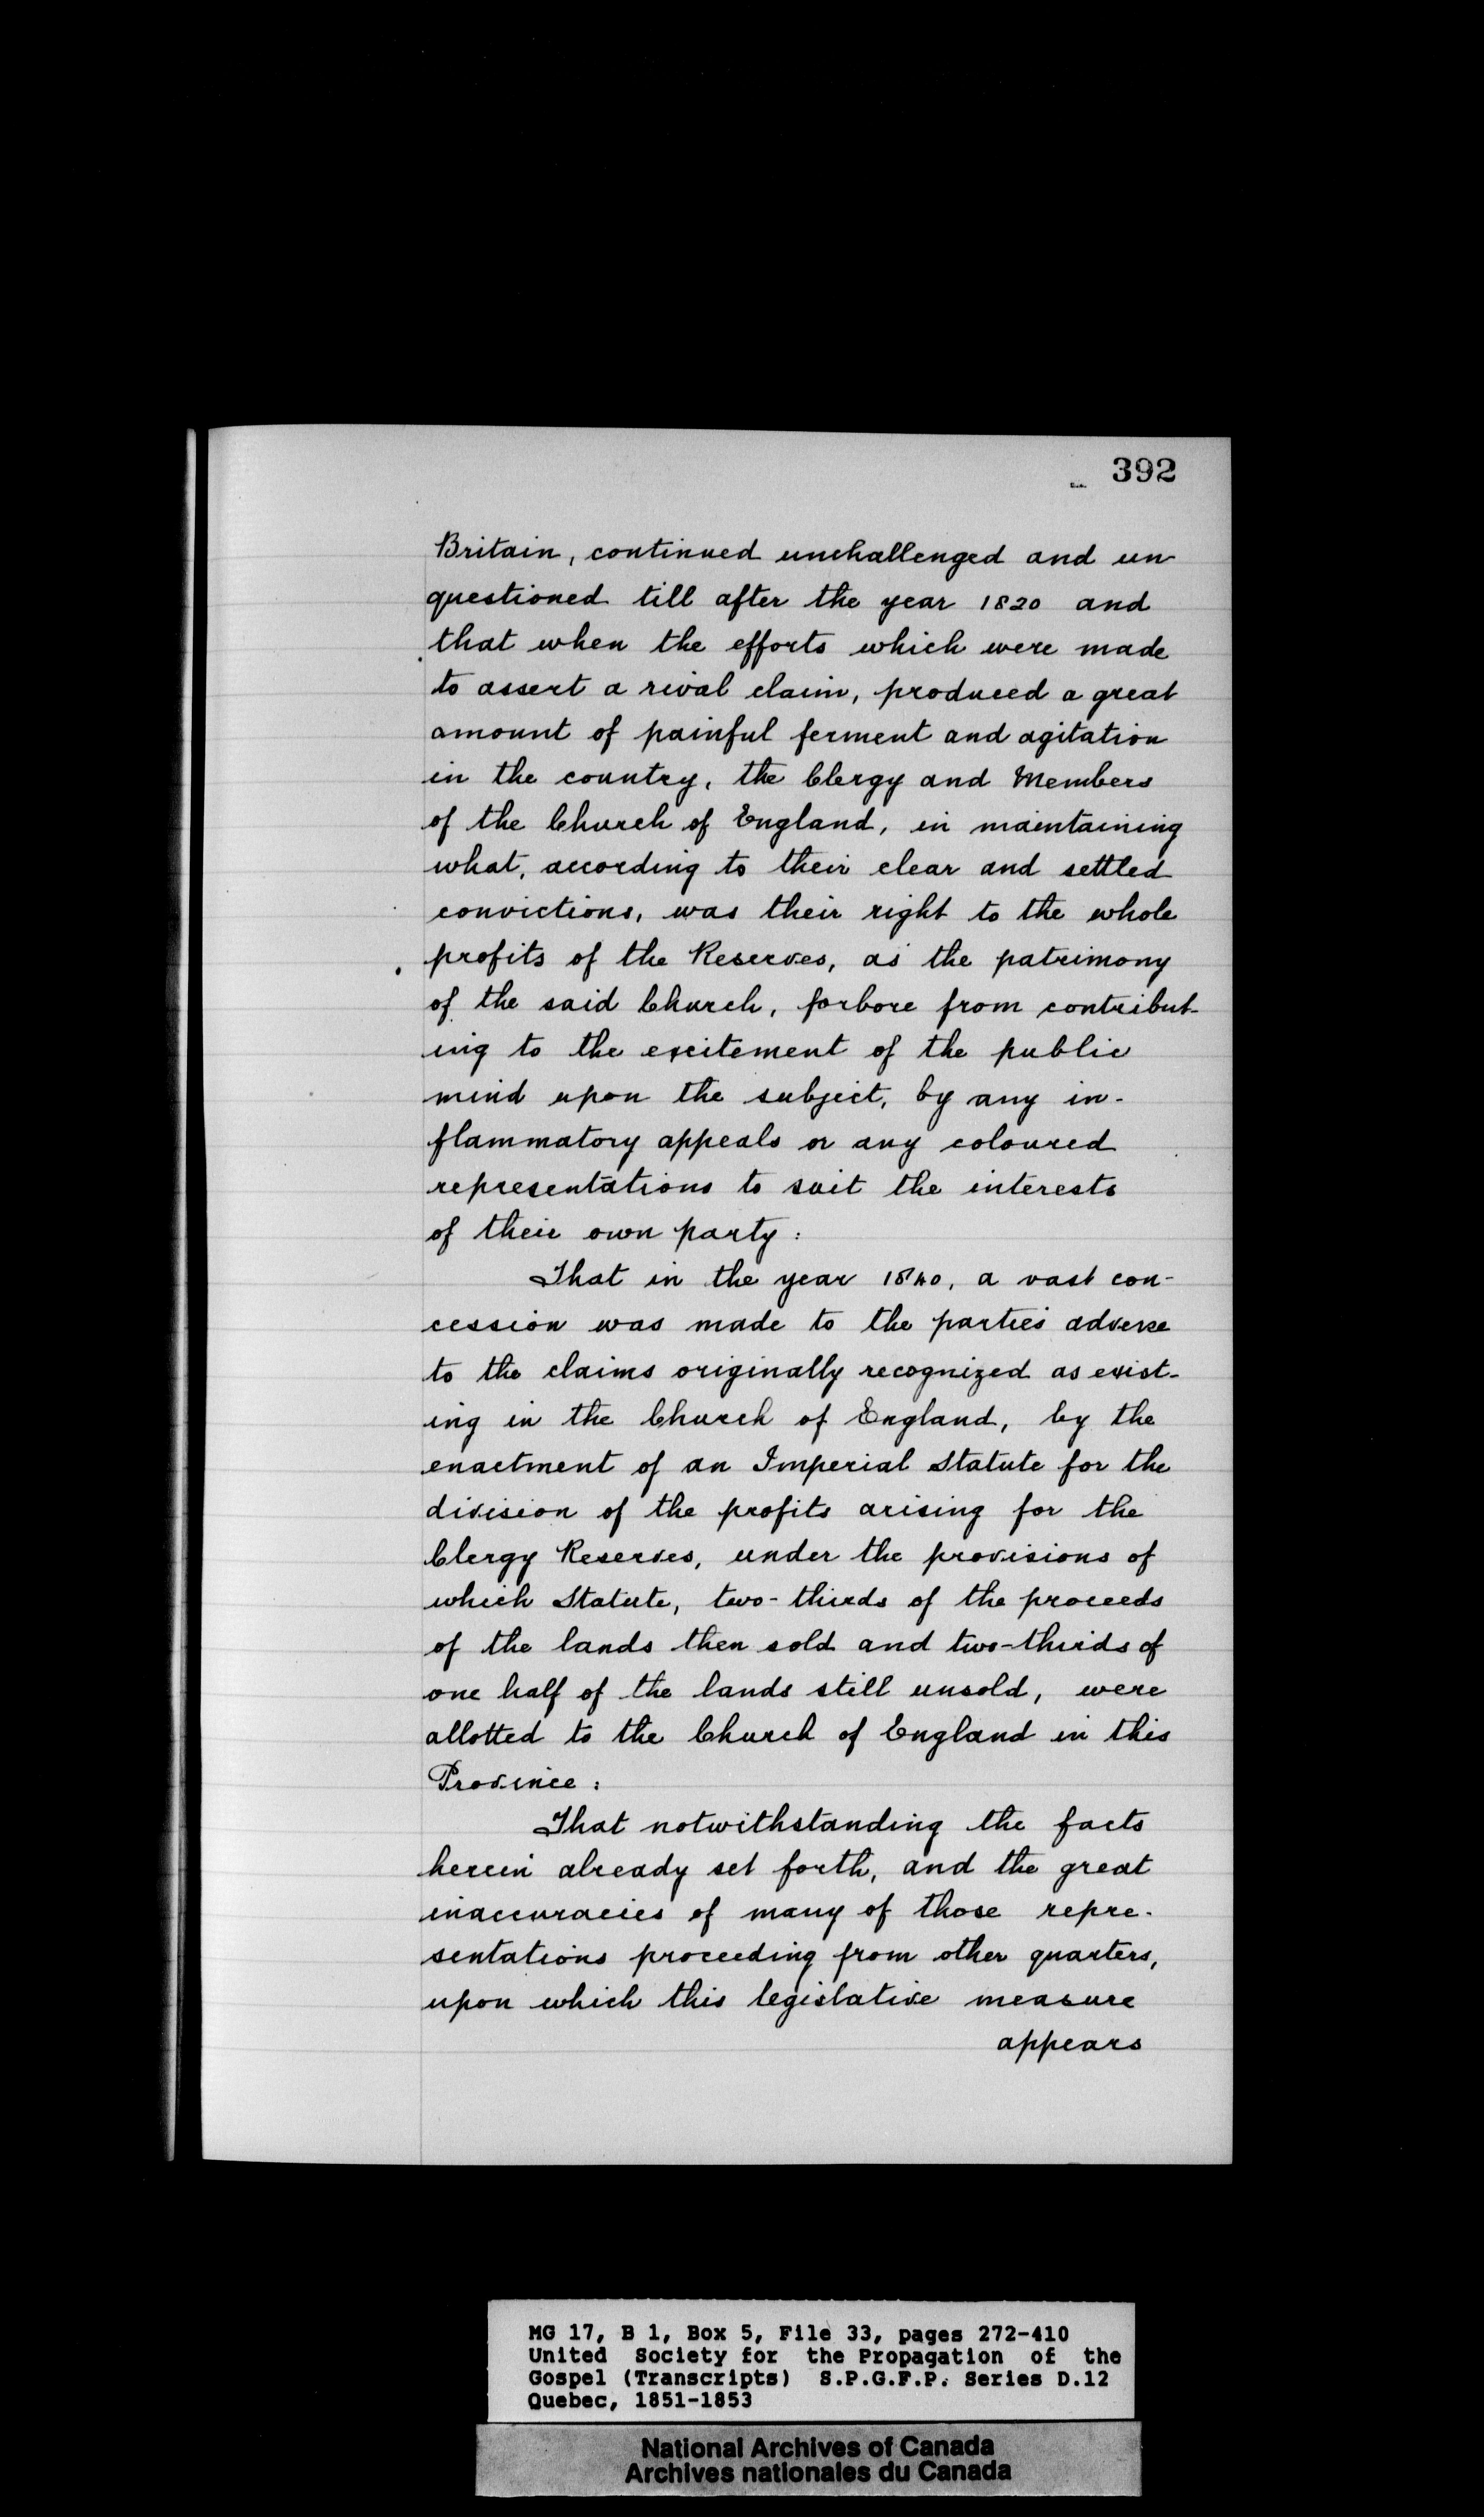 392
Britain, continued unchallenged and un-
questioned till after the year 1820 and
that when the efforts which were made
to assert a rival claim, produced a great
amount of painful ferment and agitation
in the country, the Clergy and Members
of the Church of England, in maintaining
what, according to their clear and settled
convictions, was their right to the whole
profits of the Reserves, as the patrimony
of the said Church, forbore from contribut-
ing to the excitement of the public
mind upon the subject, by any in-
flammatory appeals or any coloured
representations to suit the interests
of their own party:
That in the year 1840, a vast con-
cession was made to the parties adverse
to the claims originally recognized as exist-
ing in the Church of England, by the
enactment of an Imperial Statute for the
division of the profits arising for the
Clergy Reserves, under the provisions of
which Statute, two-thirds of the proceeds
of the lands then sold and two-thirds of
one half of the lands still unsold, were
allotted to the Church of England in this
Province:
That notwithstanding the facts
herein already set forth, and the great
inaccuracies of many of those repre-
sentations proceeding from other quarters,
upon which this legislative measure
appears
MG 17, B 1, Box 5, File 33, pages 272-410
United Society for the Propagation of the
Gospel (Transcripts) S.P.G.F.P. Series D.12
Quebec, 1851-1853
National Archives of Canada
Archives nationales du Canada